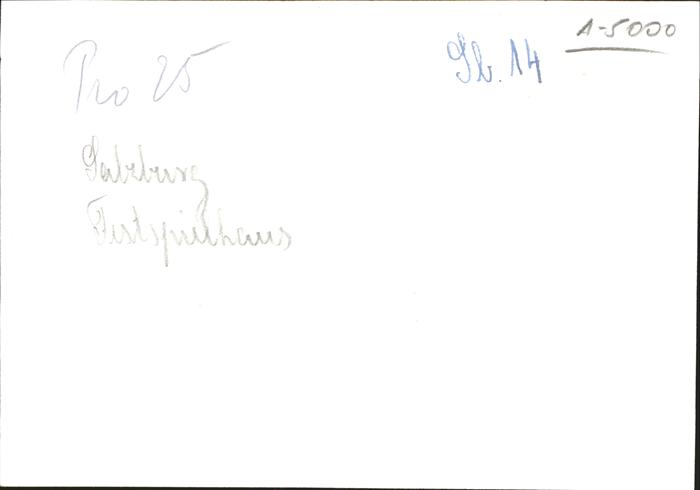 A-5000
Pro 25
Sb. 14
Salzburg
Festspielhaus